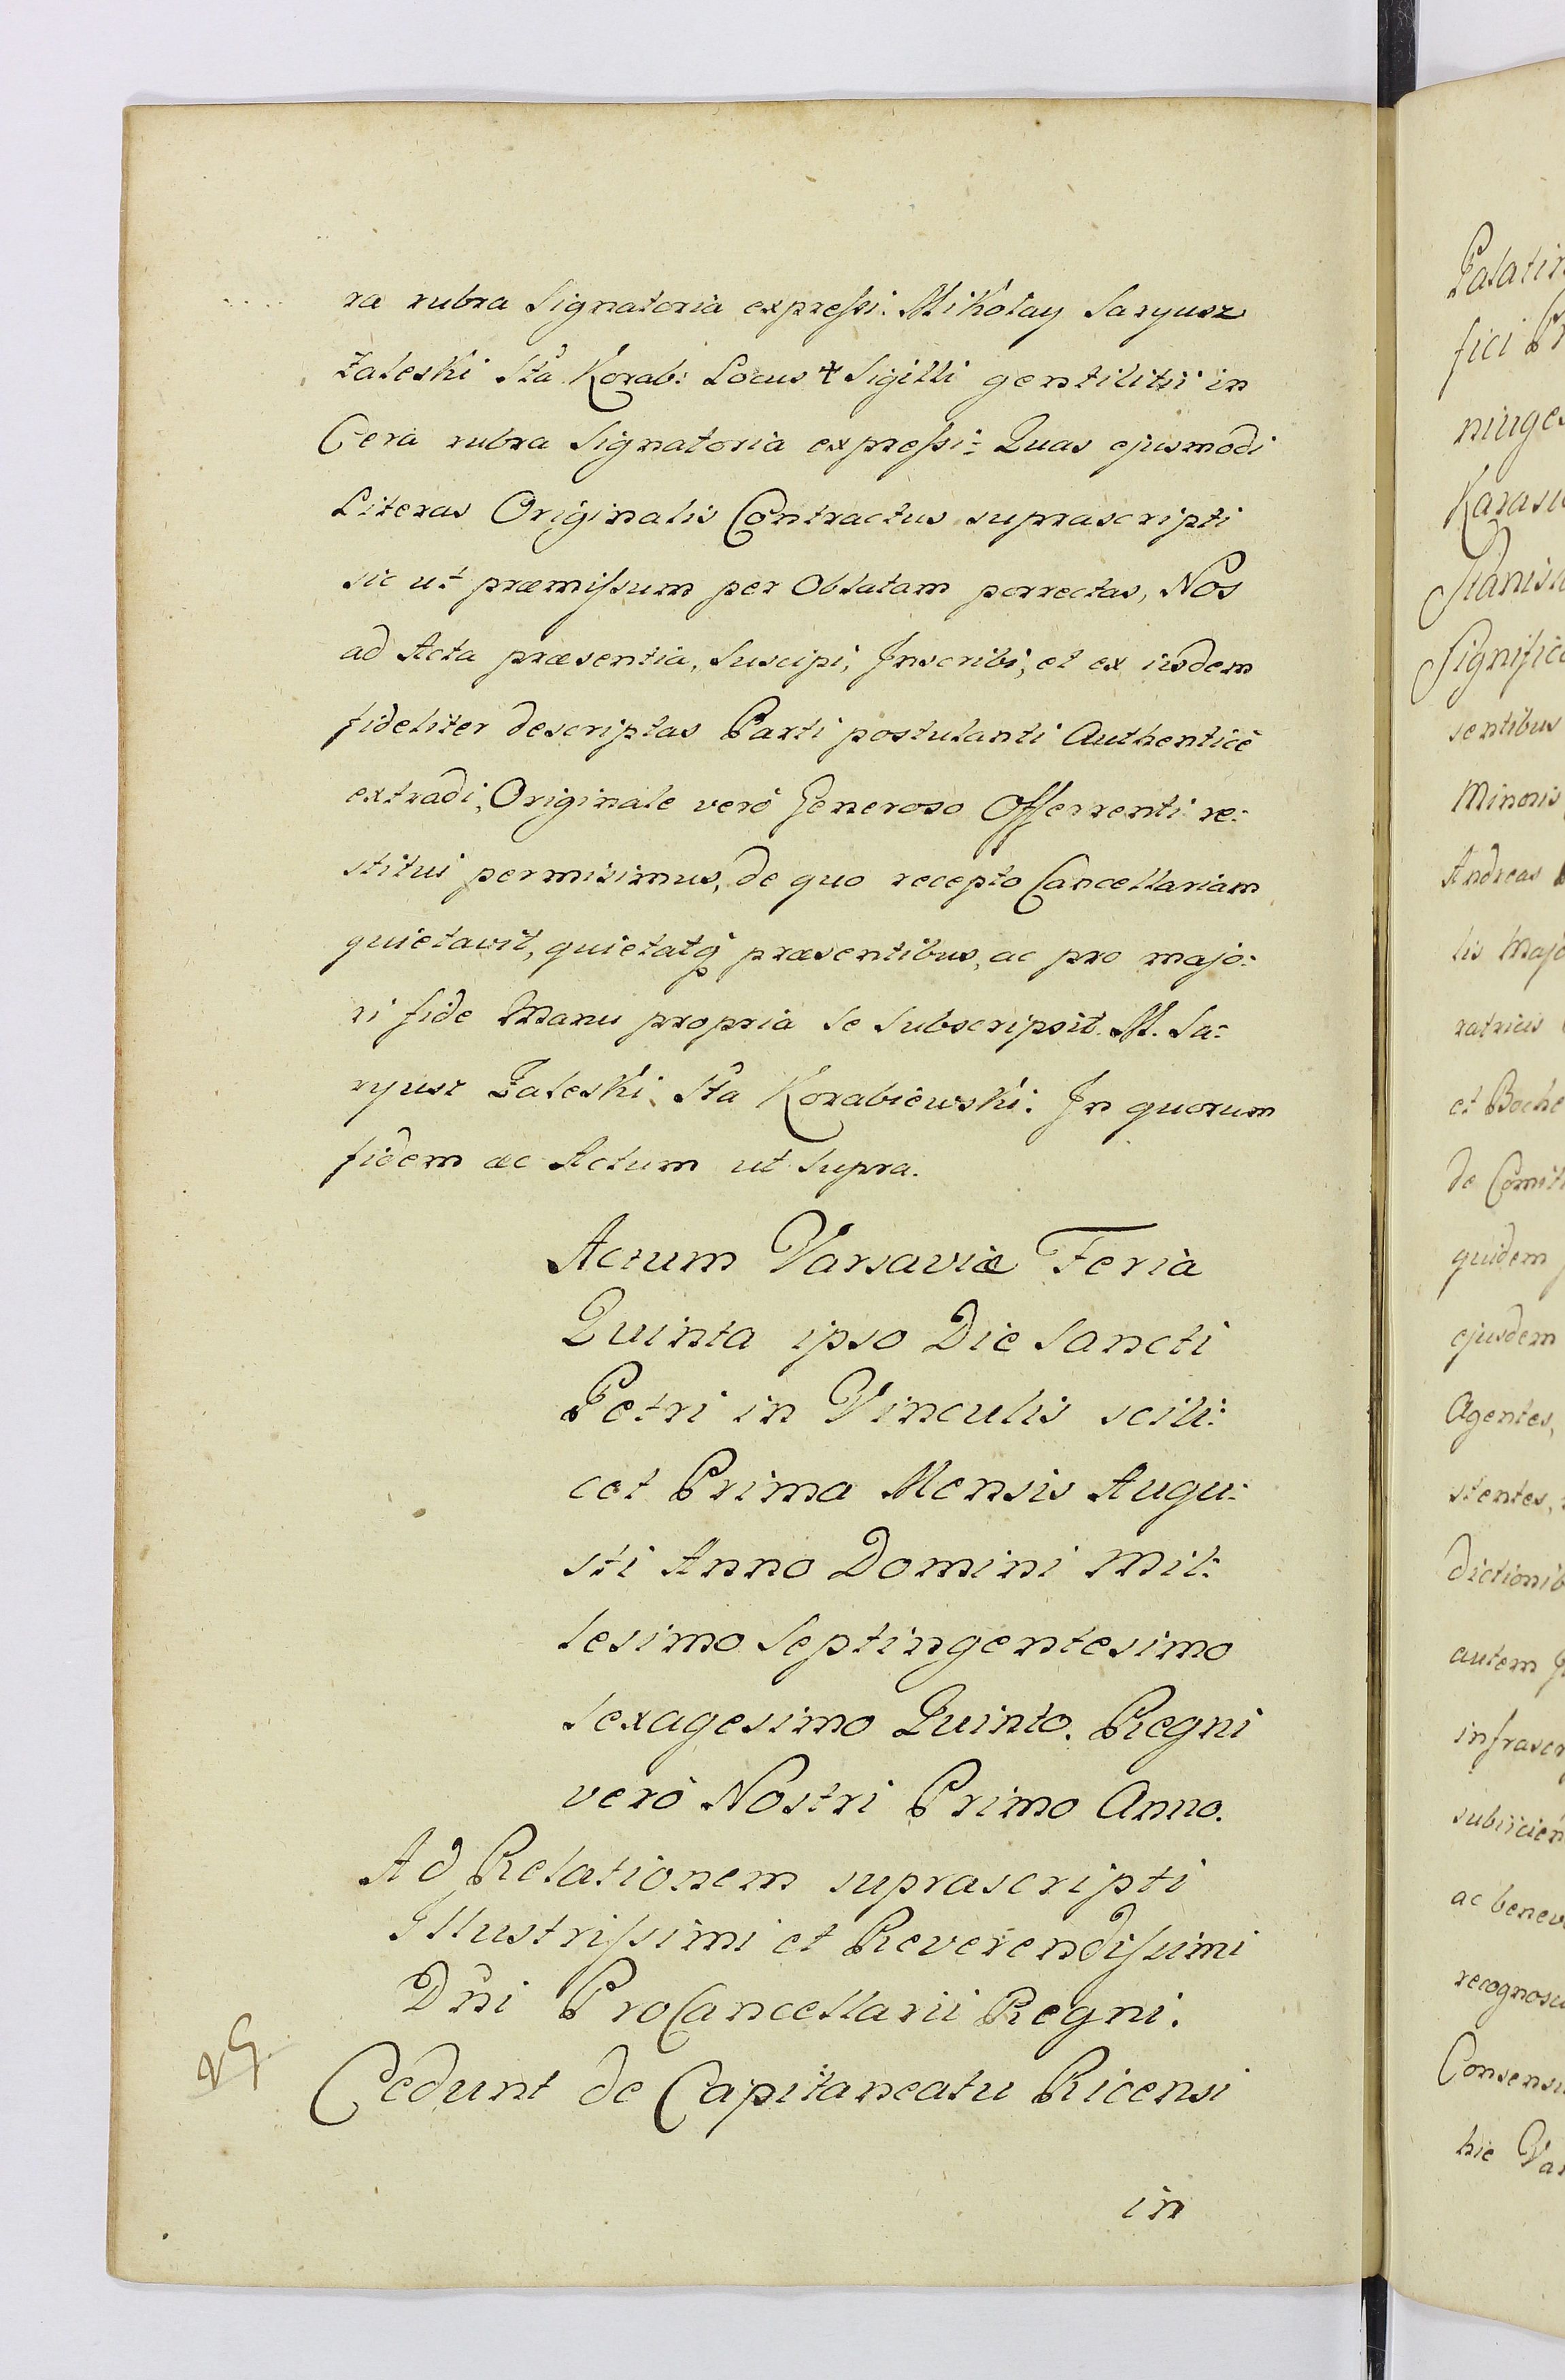 ra rubra Signatoria expressi. Mikołay Saryusz
Zaleski Stã Korab: Locus ✝ Sigilli gentilitii in
Cera rubra Signatoria expressi: Quas ejusmodi
Literas Originalis Contractus suprascripti
sic ut præmissum per Oblatam porrectas, Nos
ad Acta præsentia, Suscipi, Inscribi, et ex iisdem
fideliter descriptas Parti postulanti Authenticè
extradi, Originale verò Generoso Offerrenti re:
stitui permisimus, de quo recepto Cancellariam
quietavit, quietatq̃ præsentibus, ac pro majo:
ri fide Manu propria Se Subscripsit. M. Sa:
ryusz Zaleski Stã Korabiewski: In quorum
fidem ac Actum ut Supra.
Actum Varsaviæ Feria
Quinta ipso Die Sancti
Petri in Vinculis scili:
cet Prima Mensis Augu:
sti Anno Domini Mil:
lesimo Septingentesimo
Sexagesimo Quinto. Regni
verò Nostri Primo Anno.
Ad Relationem suprascripti
Illustrissimi et Reverendissimi
Dñi ProCancellarii Regni.
Cedunt de Capitaneatu Ricensi
in
Palatin
fici
ninges
Karasu
Stanisl
Signific
sentibus
Minoris
Andreas
lis Majo
ratricis
et Boche
de Comit
quidem
ejusdem
Agentes,
stentes,
dictionib
autem
infrascr
subiicien
ac benev
recognosc
Consensu
hic Var